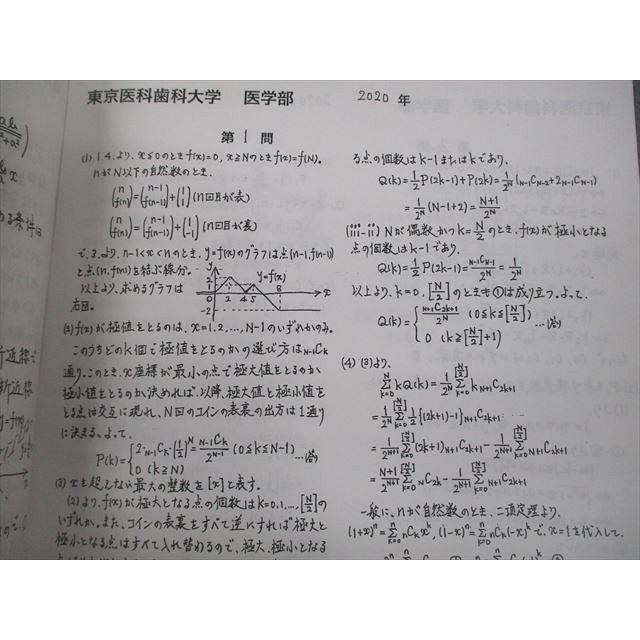 東京医科歯科大学 医学部
2020 年
第 1 問
(1) 1.4.より, x≦0のときf(x)=0, x≧Nのときf(x)=f(N)。
nがN以下の自然数のとき.
(n f(n)) = (n-1 f(n-1)) + (1 1) (n回目が表)
(n f(n)) = (n-1 f(n-1)) + (1 -1) (n回目が裏)
で,3.より, n-1<x<nのとき, y=f(x)のグラフは点(n-1, f(n-1))
と点(n, f(n))を結ぶ線分。
以上より, 求めるグラフは
右図。
y
y=f(x)
2
0
2
4
5
8
x
-2
(2) f(x)が極値をとるのは, x=1,2,…,N-1のいずれかのみ。
このうちどのk個で極値をとるのかの選び方はN-1Ck
通り。このとき, x座標が最小の点で極大値をとるのか
極小値をとるのか決めれば, 以降, 極大値と極小値を
とる点は交互に現れ, N回のコインの表裏の出方は1通り
に決まる。よって,
P(k)={2・N-1Ck・(1/2)^N = N-1Ck/2^(N-1) (0≦k≦N-1) …(答)
0 (k≧N)
(3) xを超えない最大の整数を[x]と表す。
(2)より, f(x)が極大となる点の個数はk=0,1,…,[N/2]の
いずれか。また, コインの表裏をすべて逆にすれば極大と
極小となる点はすべて入れ替わるので, 極大, 極小となる
る点の個数はk-1またはkであり,
Q(k)=1/2 P(2k-1)+P(2k)=1/2^N (N-1CN-2+2N-1CN-1)
=1/2^N (N-1+2)=(N+1)/2^N
(iii-ii) Nが偶数かつk=N/2のとき, f(x)が極小となる
点の個数はk-1であり,
Q(k)=1/2 P(2k-1)=N-1CN-1/2^N=1/2^N
以上より, k=0, [N/2]のときも①は成り立つ。よって,
Q(k)={N+1C2k+1/2^N (0≦k≦[N/2]) …(答)
0 (k≧[N/2]+1)
(4) (3)より,
Σ[k=0,N] kQ(k)=1/2^N Σ[k=0,[N/2]] k N+1C2k+1
=1/2^N Σ[k=0,[N/2]] 1/2{(2k+1)-1}N+1C2k+1
=1/2^(N+1) Σ[k=0,[N/2]] (2k+1)N+1C2k+1 - 1/2^(N+1) Σ[k=0,[N/2]] N+1C2k+1
=(N+1)/2^(N+1) Σ[k=0,[N/2]] NC2k - 1/2^(N+1) Σ[k=0,[N/2]] N+1C2k+1
一般に, nが自然数のとき, 二項定理より,
(1+x)^n=Σ[k=0,n] nCk x^k, (1-x)^n=Σ[k=0,n] nCk(-x)^k で, x=1を代入して,